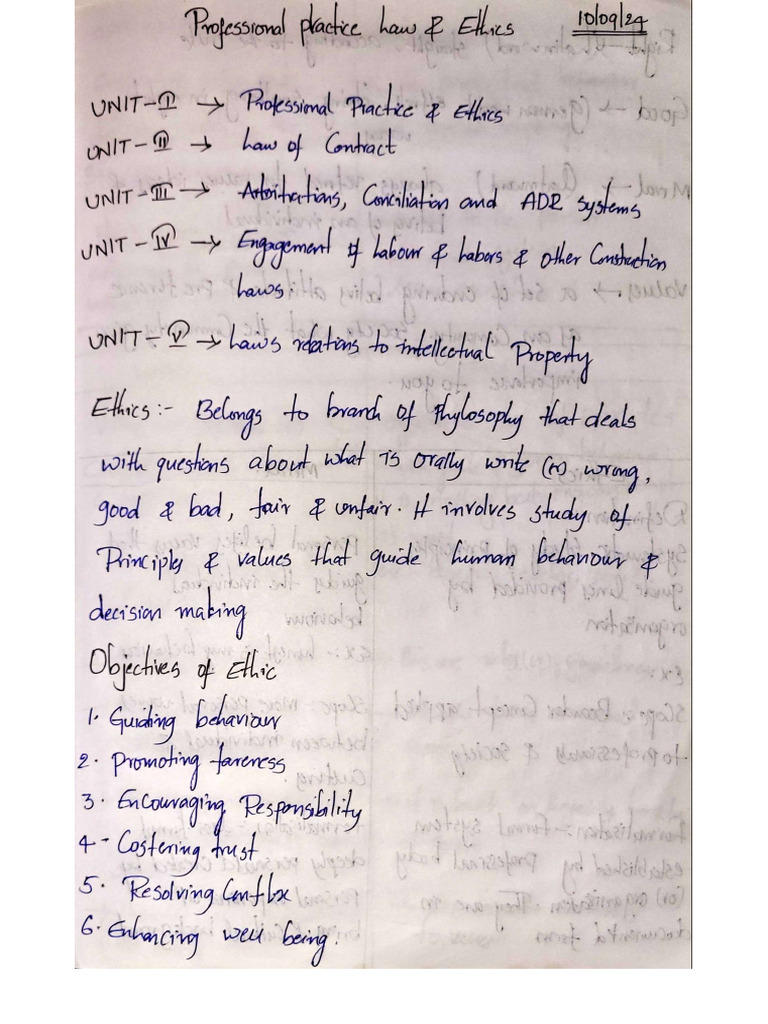 Professional practice Law & Ethics 10/09/24
UNIT-I → Professional Practice & Ethics
UNIT-II → Law of Contract
UNIT-III → Arbitrations, Conciliation and ADR systems
UNIT-IV → Engagement of Labour & Labors & Other Construction
Laws.
UNIT-V → Laws relations to intellectual Property
Ethics:- Belongs to branch of Phylosophy that deals
with questions about what is orally write (or) wrong,
good & bad, fair & unfair. It involves study of
Principles & values that guide human behaviour &
decision making
Objectives of Ethic
1. Guiding behaviour
2. Promoting fareness
3. Encouraging Responsibility
4- Costering trust
5. Resolving
6. Enhancing well being.